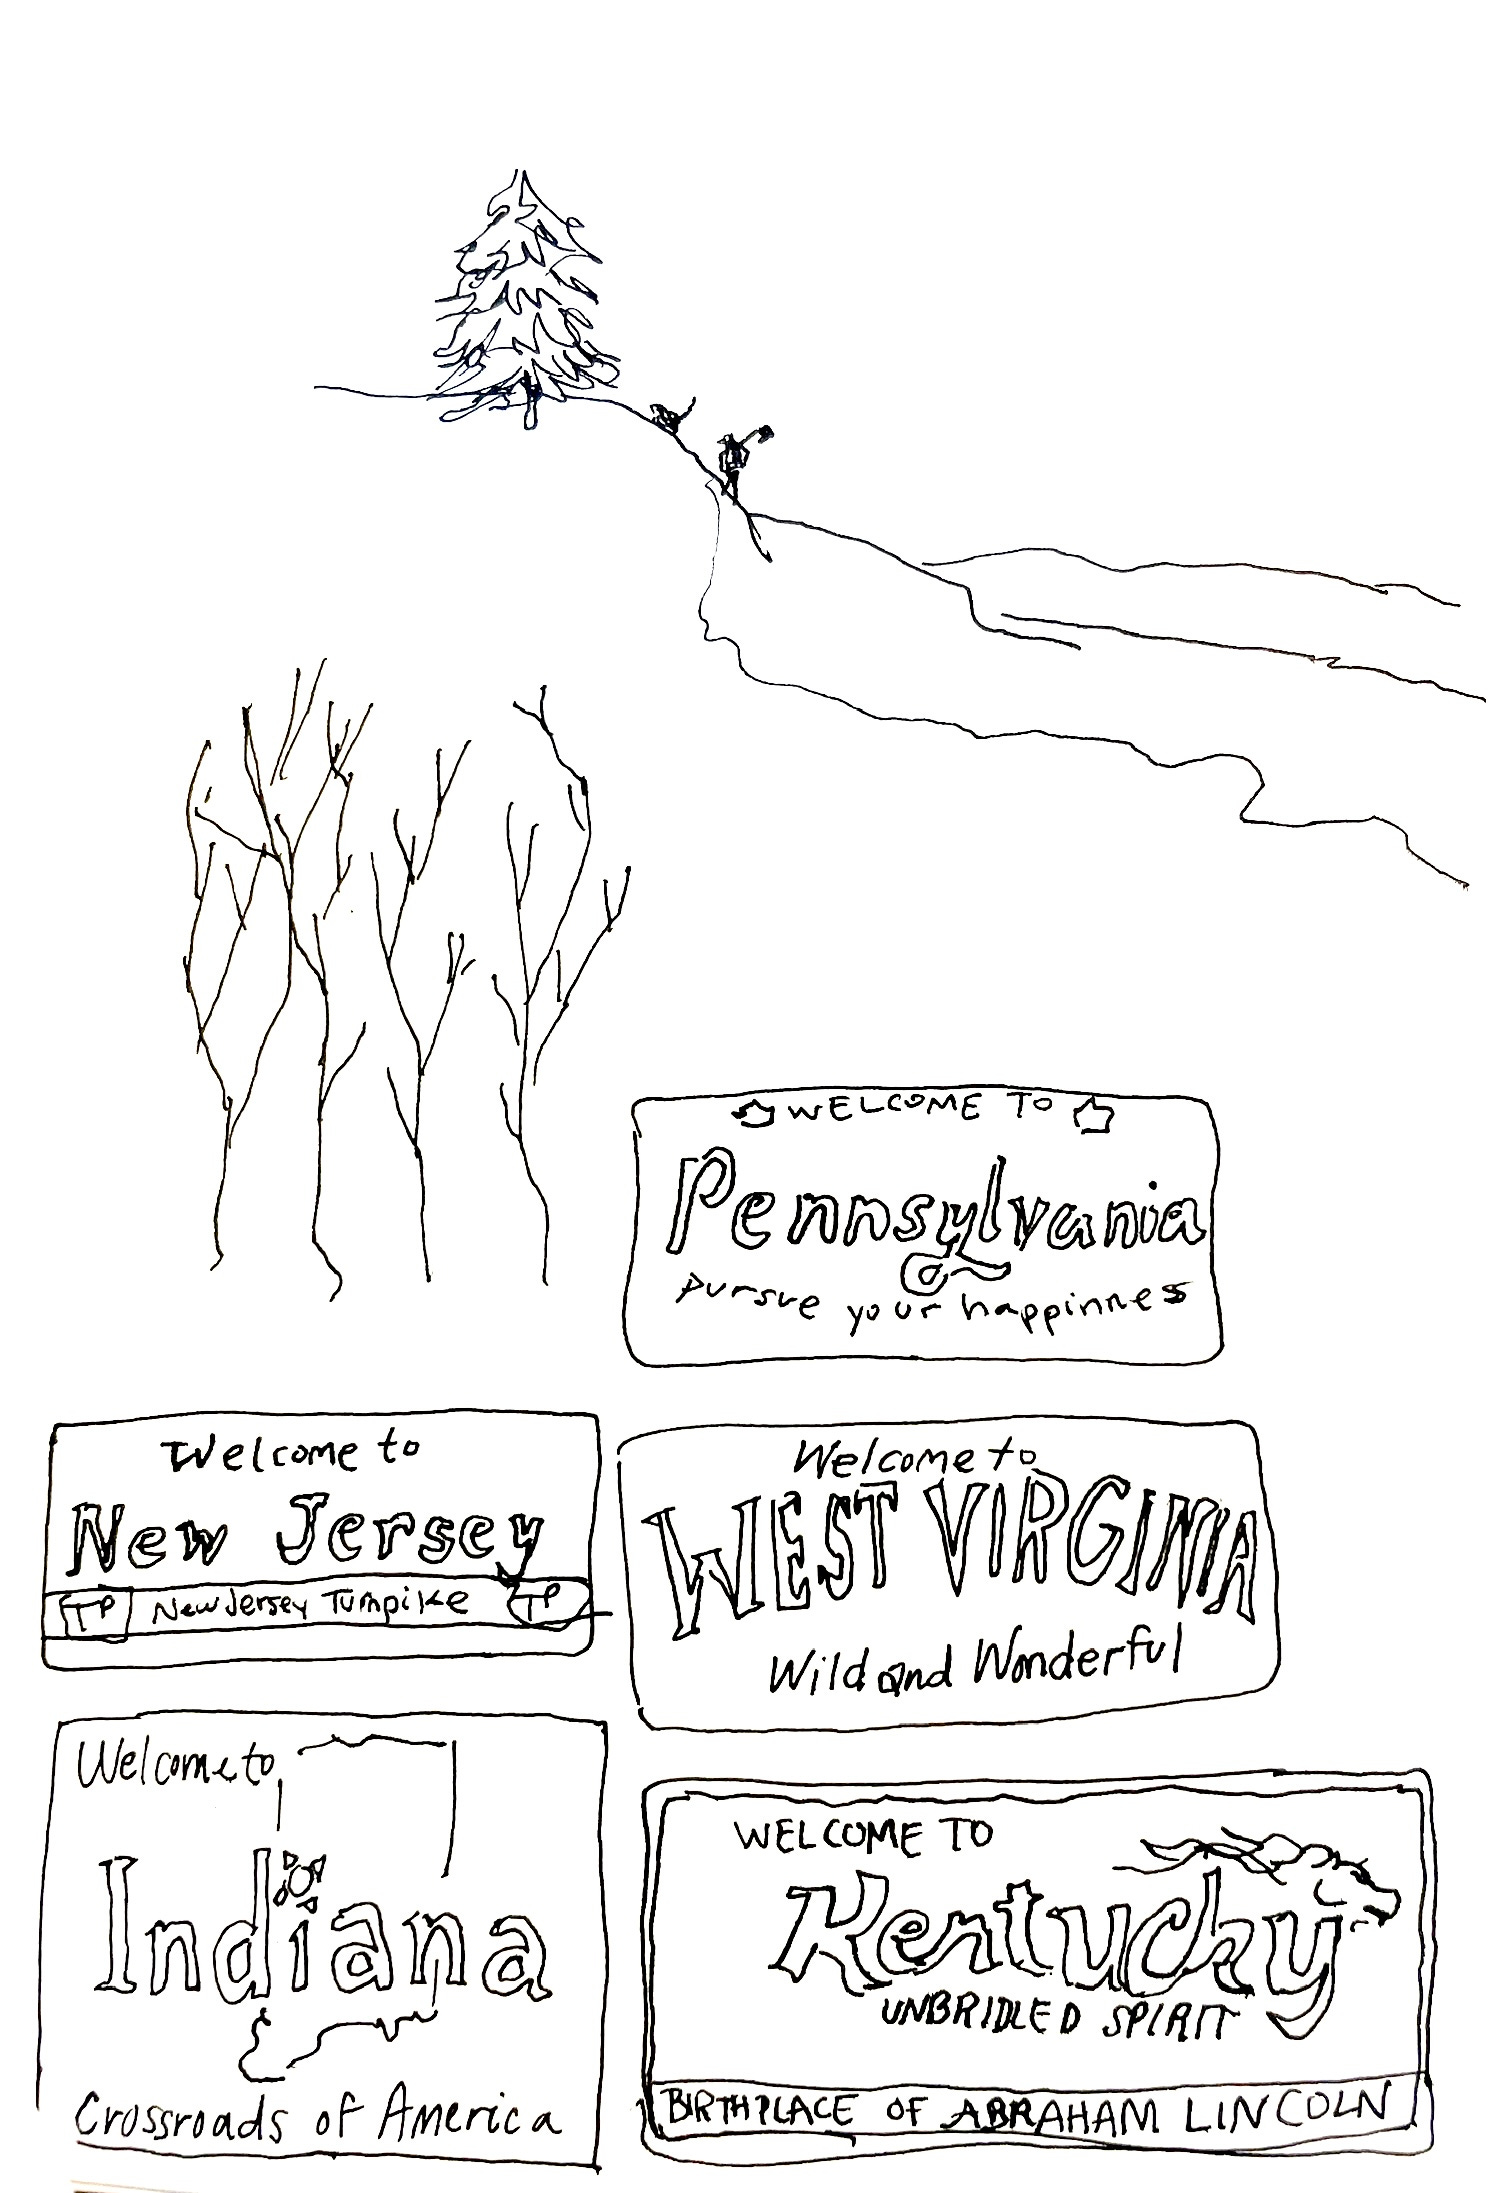 WELCOME TO
Pennsylvania
pursue your happinnes
Welcome to
New Jersey
TP New Jersey Turnpike TP
Welcome to
WEST VIRGINIA
Wild and Wonderful
Welcome to
Indiana
Crossroads of America
WELCOME TO
Kentucky
UNBRIDLED SPIRIT
BIRTHPLACE OF ABRAHAM LINCOLN